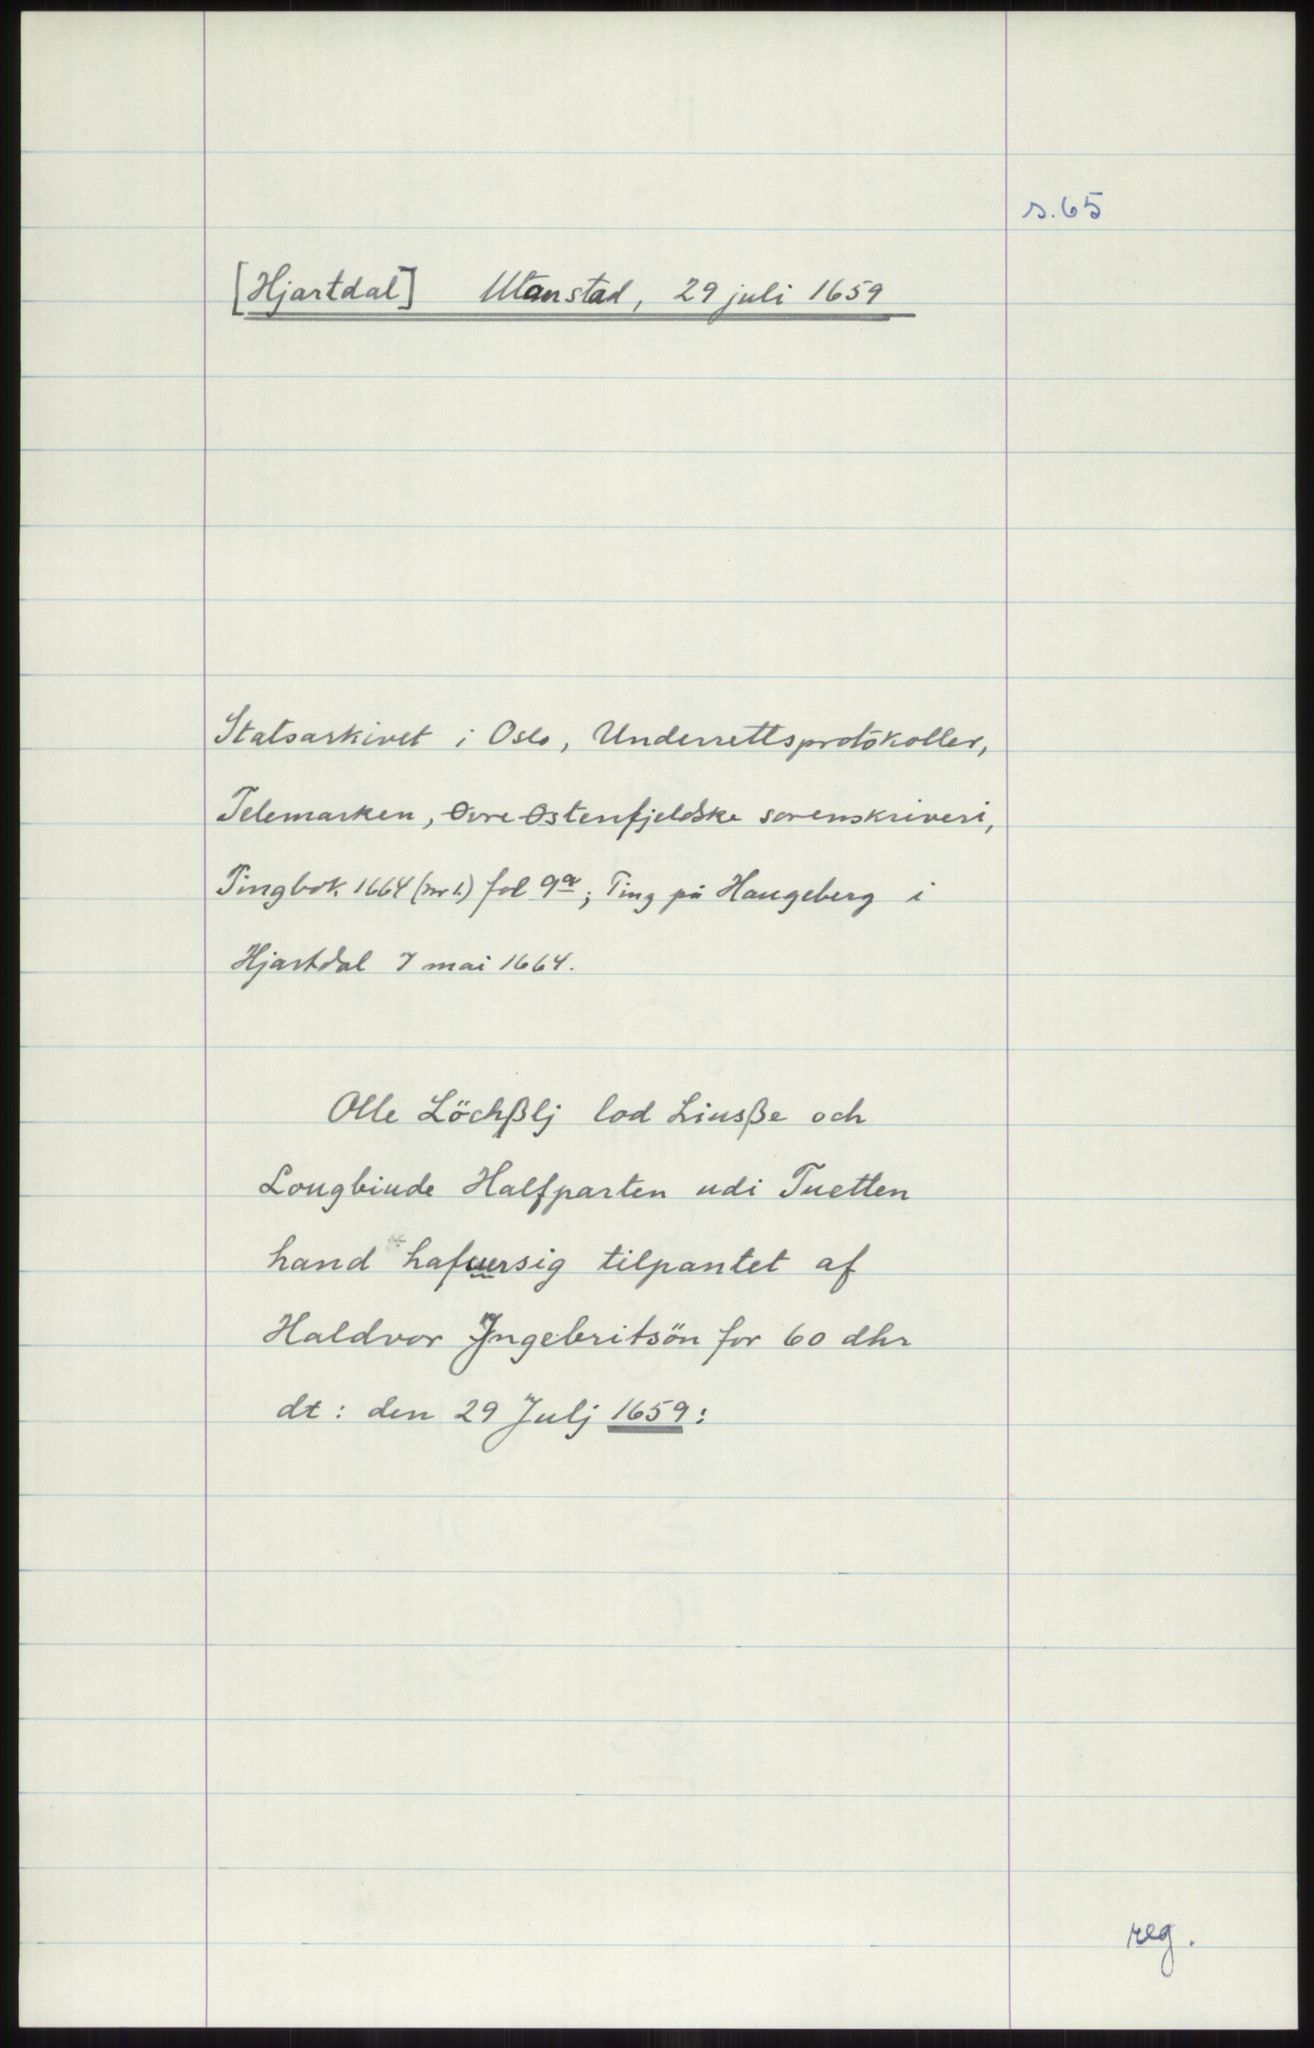 s. 65
[Hjartdal] Utanstad, 29 juli 1659
Statsarkivet i Oslo, Underrettsprotokoller,
Telemarken, Øvre Østenfjeldske sorenskriveri,
Tingbok 1664 (nr 1.) fol 9a; Ting på Haugeberg i
Hjartdal 7 mai 1664.
Olle Löchßlj lod Liusße och
Lougbiude Halfparten udi Tuetten
hand hafuersig tilpantet af
Haldvor Jngebritsön for 60 dhr
dt: den 29 Julj 1659:
reg.